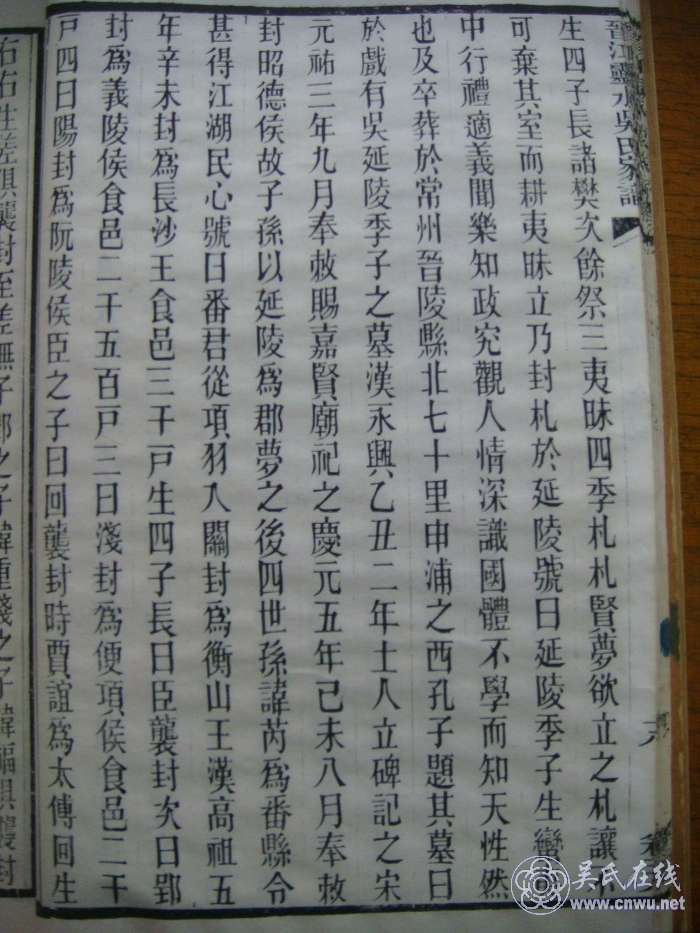 晉江靈水吳氏家譜
生四子長諸樊次餘祭三夷昧四季札札賢夢欲立之札讓不
可棄其室而耕夷昧立乃封札於延陵號曰延陵季子生蠻
中行禮適義聞樂知政究觀人情深識國體不學而知天性然
也及卒葬於常州晉陵縣北七十里申浦之西孔子題其墓曰
於戲有吳延陵季子之墓漢永興乙丑二年士人立碑記之宋
元祐三年九月奉敕賜嘉賢廟祀之慶元五年己未八月奉敕
封昭德侯故子孫以延陵為郡夢之後四世孫諱芮為番縣令
甚得江湖民心號曰番君從項羽入關封為衡山王漢高祖五
年辛未封為長沙王食邑三千戶生四子長曰臣襲封次曰郢
封為義陵侯食邑二千五百戶三曰淺封為便項侯食邑二千
戶四曰陽封為阮陵侯臣之子曰回襲封時賈誼為太傅回生
右右生差俱襲封至差無子郢之子諱重淺之子諱福俱襲封
吴氏在线
www.cnwu.net